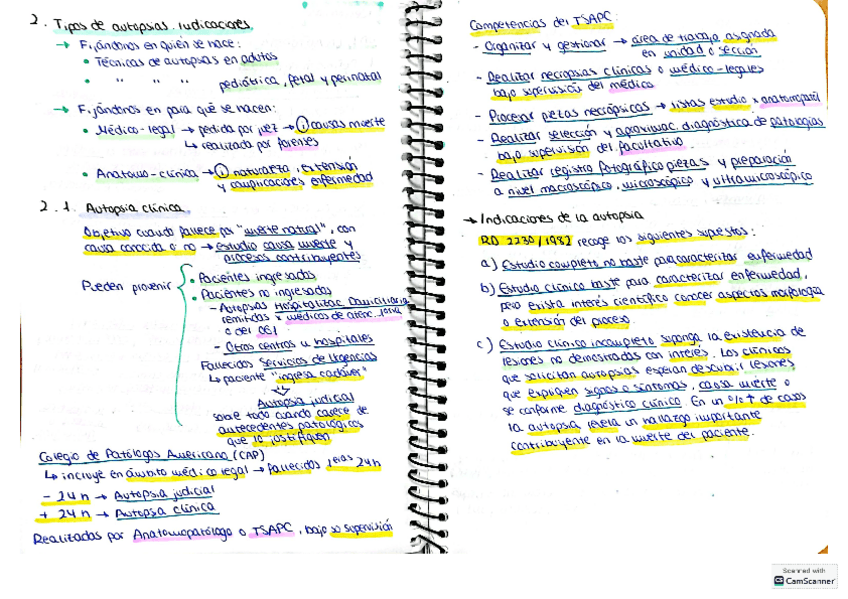 2. Tipos de autopsias. Indicaciones.
→ Fijándonos en quién se hace:
• Técnicas de autopsias en adultos
• " " " pediátrica, fetal y perinatal
→ Fijándonos en para qué se hacen:
• Médico-legal → pedida por juez → ① causas muerte
↳ realizada por forenses
• Anatomo-clínica → ① naturaleza, extensión
y complicaciones enfermedad
2.1. Autopsia clínica.
Objetivo cuando fallece por "muerte natural", con
causa conocida o no → estudio causa muerte y
procesos contribuyentes
Pueden provenir
• Pacientes ingresados
• Pacientes no ingresados
- Autopsias Hospitalizac. Domiciliaria
remitidas x médicos de atenc. 1aria
o del 061
- Otros centros u hospitales
Fallecidos Servicios de Urgencias
↳ paciente "ingresa cadáver"
Autopsia judicial
sobre todo cuando carece de
antecedentes patológicos
que lo justifiquen
Colegio de Patólogos Americana (CAP)
↳ incluye en ámbito médico legal → fallecidos 1eras 24h
- 24h → Autopsia judicial
+ 24h → Autopsia clínica
Realizadas por Anatomopatólogo o TSAPC, bajo su supervisión
Competencias del TSAPC:
- Organizar y gestionar → área de trabajo asignada
en unidad o sección
- Realizar necropsias clínicas o médico-legales
bajo supervisión del médico
- Procesar piezas necrópsicas → listas estudio x anatomopatól
- Realizar selección y aproximac. diagnóstica de patologías
bajo supervisión del facultativo
- Realizar registro fotográfico piezas y preparación
a nivel macroscópico, microscópico y ultramicroscópico
→ Indicaciones de la autopsia
RD 2230/1982 recoge los siguientes supuestos:
a) Estudio completo no baste para caracterizar enfermedad
b) Estudio clínico baste para caracterizar enfermedad,
pero exista interés científico conocer aspectos morfología
o extensión del proceso.
c) Estudio clínico incompleto suponga la existencia de
lesiones no demostradas con interés. Los clínicos
que solicitan autopsias esperan descubrir lesiones
que expliquen signos o síntomas, causa muerte o
se conforme diagnóstico clínico. En un %↑ de casos
la autopsia revela un hallazgo importante
contribuyente en la muerte del paciente.
Scanned with
CS CamScanner